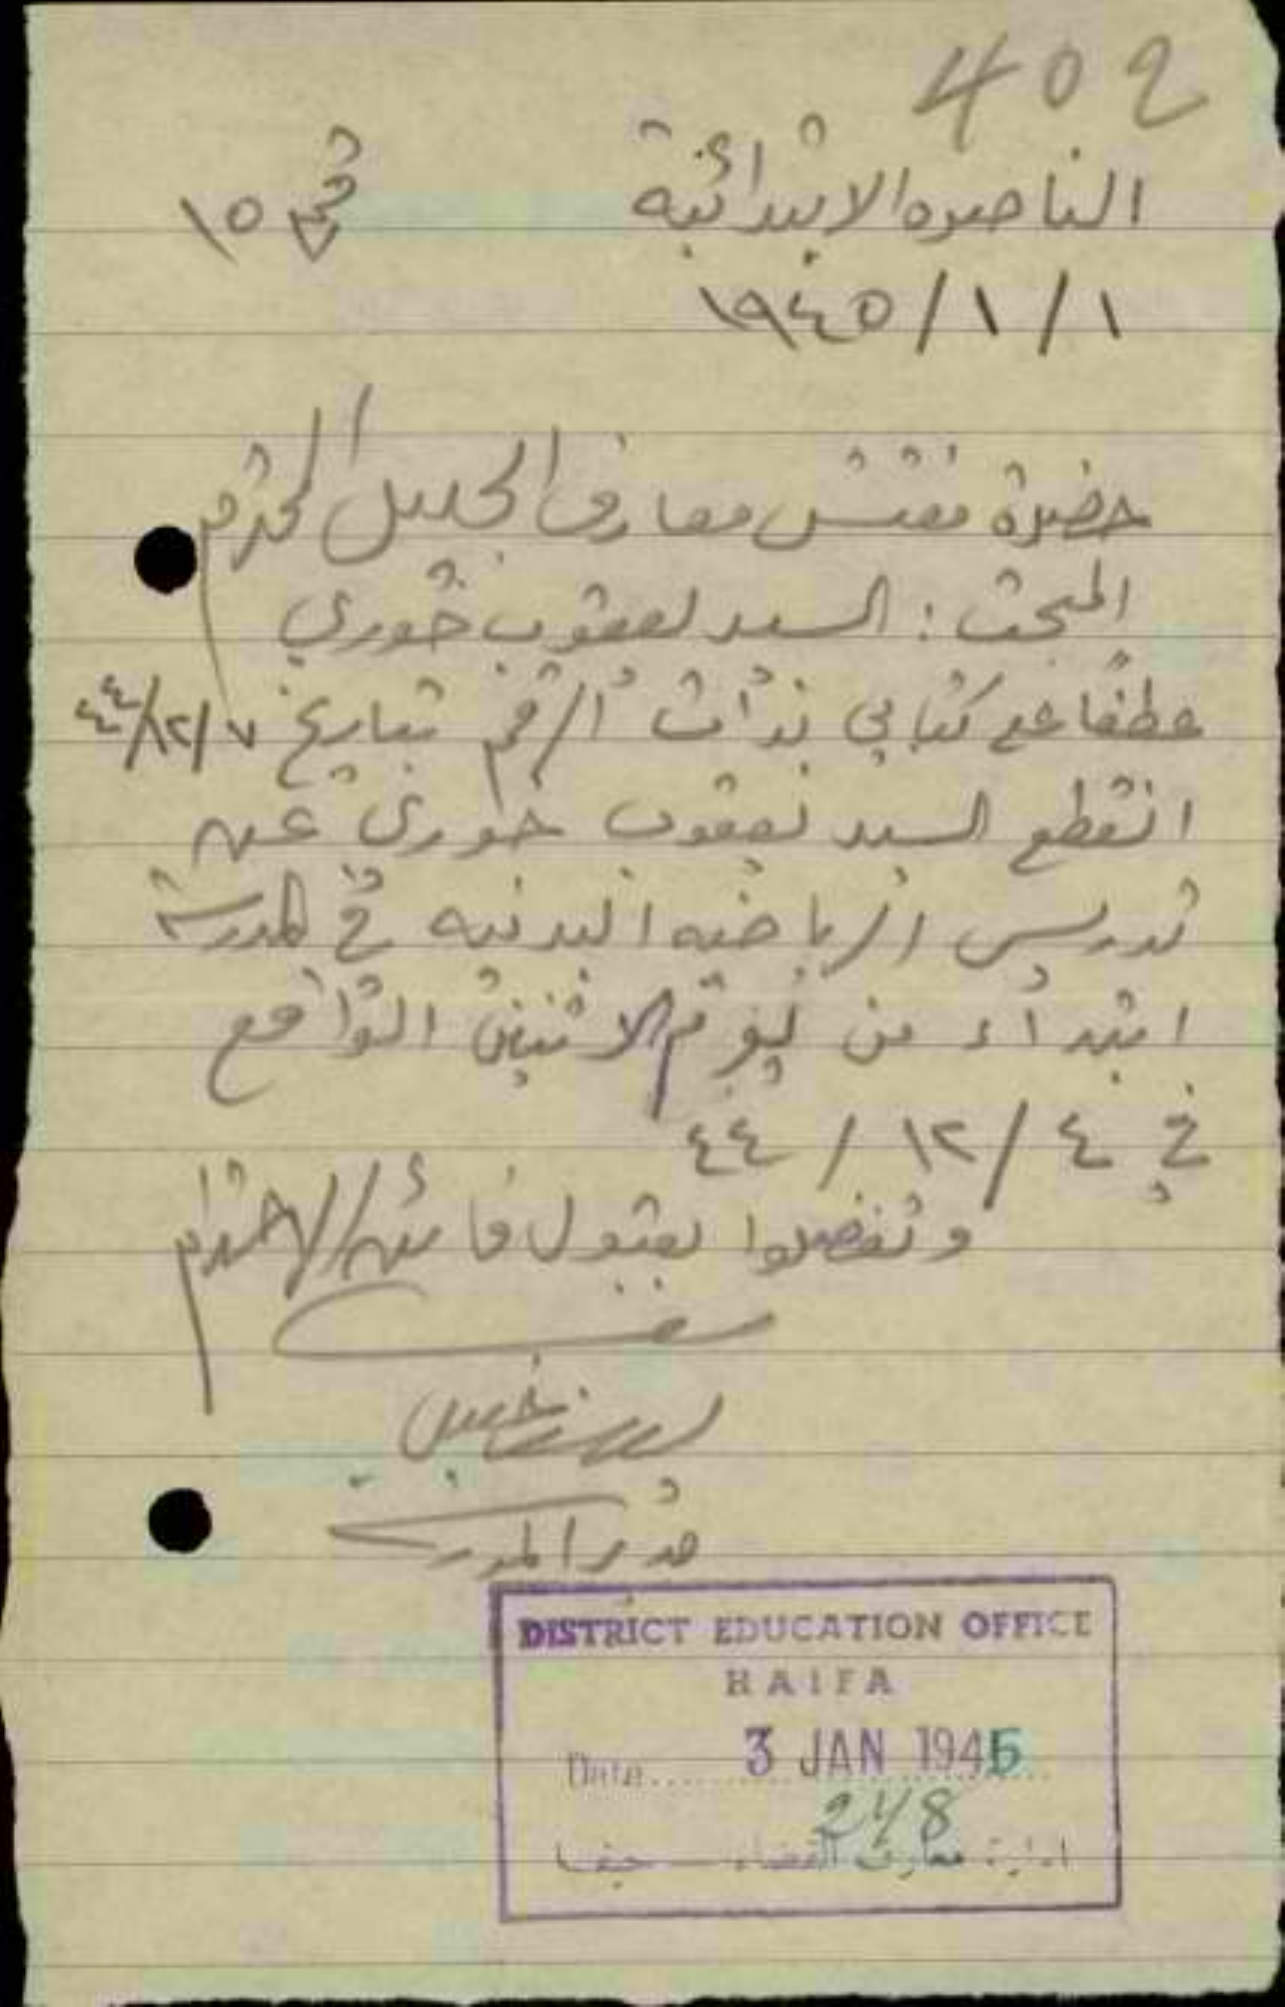 402
الناصره الابتدائية
١٥
١/١/١٩٤٥
حضرة مفتش معارف الجليل المحترم
المبحث : السيد يعقوب خوري
عطفا على كتابي ذات الرقم بتاريخ ٧/١٢/٤٤
انقطع السيد يعقوب خوري عن
تدريس الرياضه البدنيه في المدرسة
ابتداء من يوم الاثنين الواقع
في ٤/١٢/٤٤
وتفضلوا بقبول فائق الاحترام
مدير المدرسة
DISTRICT EDUCATION OFFICE
HAIFA
Date..... 3 JAN 1945
248
ادارة معارف القضاء — حيفا